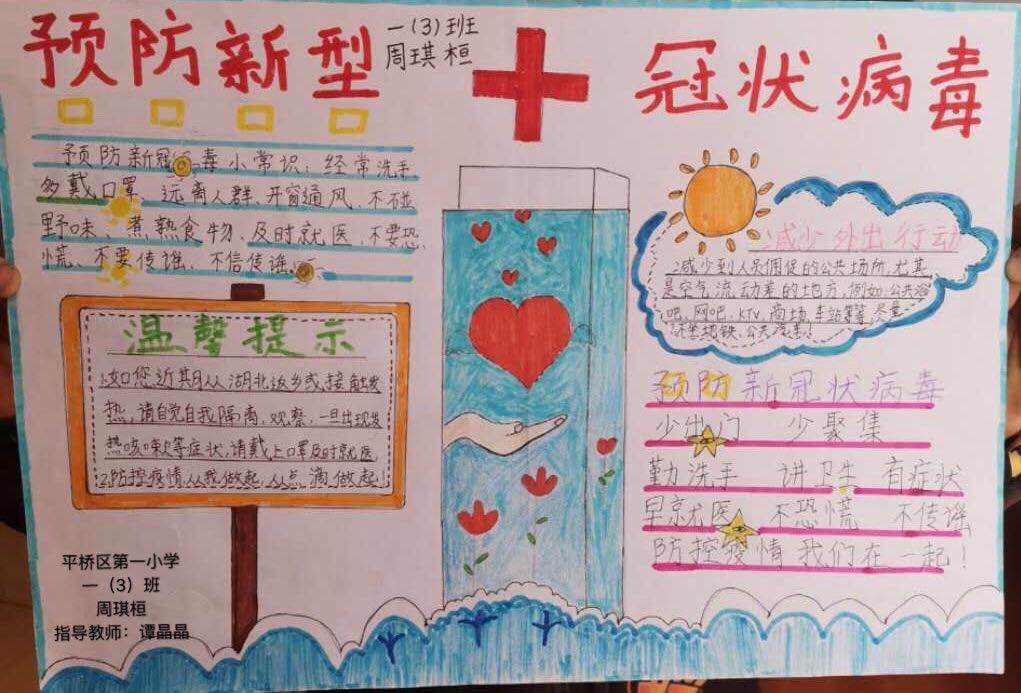 预防新型
一(3)班
周琪桓
冠状病毒
预防新冠毒小常识：经常洗手、
多戴口罩、远离人群、开窗通风、不碰
野味、煮熟食物、及时就医、不要恐
慌、不要传谣、不信传谣。
温馨提示
1.如您近期从湖北返乡或接触发
热，请自觉自我隔离，观察，一旦出现发
热咳嗽等症状，请戴上口罩及时就医
2.防控疫情从我做起，从点滴做起
减少外出行动
减少到人员拥促的公共场所，尤其
是空气流动差的地方，例如：公共浴
吧、网吧、KTV、商场、车站等等，尽量
不坐地铁、公共汽车！
预防新冠状病毒
少出门 少聚集
勤洗手 讲卫生 有症状
早就医 不恐慌 不传谣
防控疫情我们在一起！
平桥区第一小学
一（3）班
周琪桓
指导教师：谭晶晶